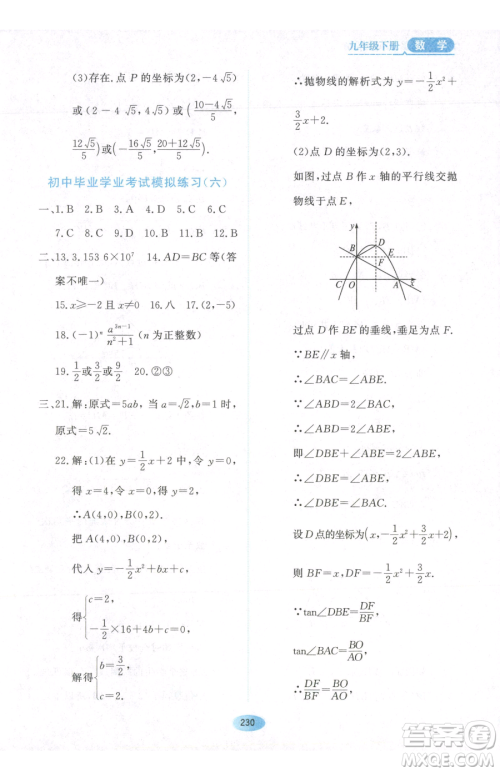 九年级下册 数 学
(3)存在.点 P 的坐标为(2,-4√5)
或(2-4√5,4√5)或((10-4√5)/5,
12√5/5)或(-16√5/5,(20+12√5)/5).
初中毕业学业考试模拟练习(六)
一、1.B 2.B 3.A 4.D 5.B 6.C
7.C 8.C 9.B 10.B 11.D 12.C
二、13.3.153 6×10⁷ 14.AD=BC 等(答
案不唯一)
15.x≥-2 且 x≠0 16.八 17.(-2,0)
18.(-1)ⁿ a³ⁿ⁻¹/(n²+1) (n 为正整数)
19.1/2或3/2或9/2 20.②③
三、21.解:原式=5ab,当 a=√2,b=1 时,
原式=5√2.
22.解:(1)在 y=1/2x+2 中,令 y=0,
得 x=4,令 x=0,得 y=2.
∴A(4,0),B(0,2).
把 A(4,0),B(0,2).
代入 y=-1/2x²+bx+c,
得{c=2,
-1/2×16+4b+c=0,
解得{b=3/2,
c=2.
∴抛物线的解析式为 y=-1/2x²+
3/2x+2.
(2)点 D 的坐标为(2,3).
如图,过点 B 作 x 轴的平行线交抛
物线于点 E,
y
D
B
E
F
C
O
A
x
过点 D 作 BE 的垂线,垂足为 F.
∵BE∥x 轴,
∴∠BAC=∠ABE.
∵∠ABD=2∠BAC,
∴∠ABD=2∠ABE.
即∠DBE+∠ABE=2∠ABE.
∴∠DBE=∠ABE.
∴∠DBE=∠BAC.
设 D 点的坐标为(x,-1/2x²+3/2x+2),
则 BF=x,DF=-1/2x²+3/2x.
∵tan∠DBE=DF/BF,
tan∠BAC=BO/AO,
∴DF/BF=BO/AO,
230